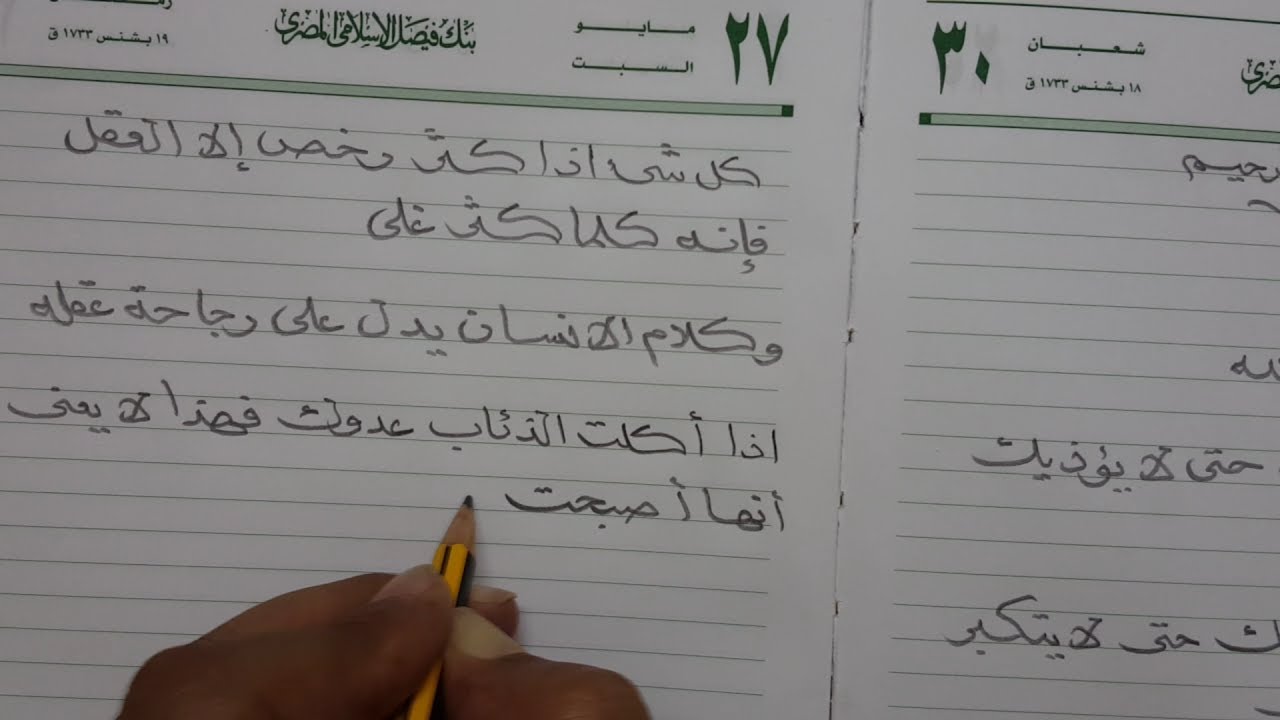 ٣٠
شعبان
١٨ بشنس ١٧٣٣ ق
حتى لا يؤذيك
حتى لا يتكبر
٢٧
مايو
السبت
بنك فيصل الإسلامي المصري
١٩ بشنس ١٧٣٣ ق
كل شىء اذا كثر رخص إلا العقل
فإنه كلما كثر غلى
وكلام الانسان يدل على رجاحة عقله
اذا أكلت الذئاب عدوك فهذا لا يعنى
أنها أصبحت